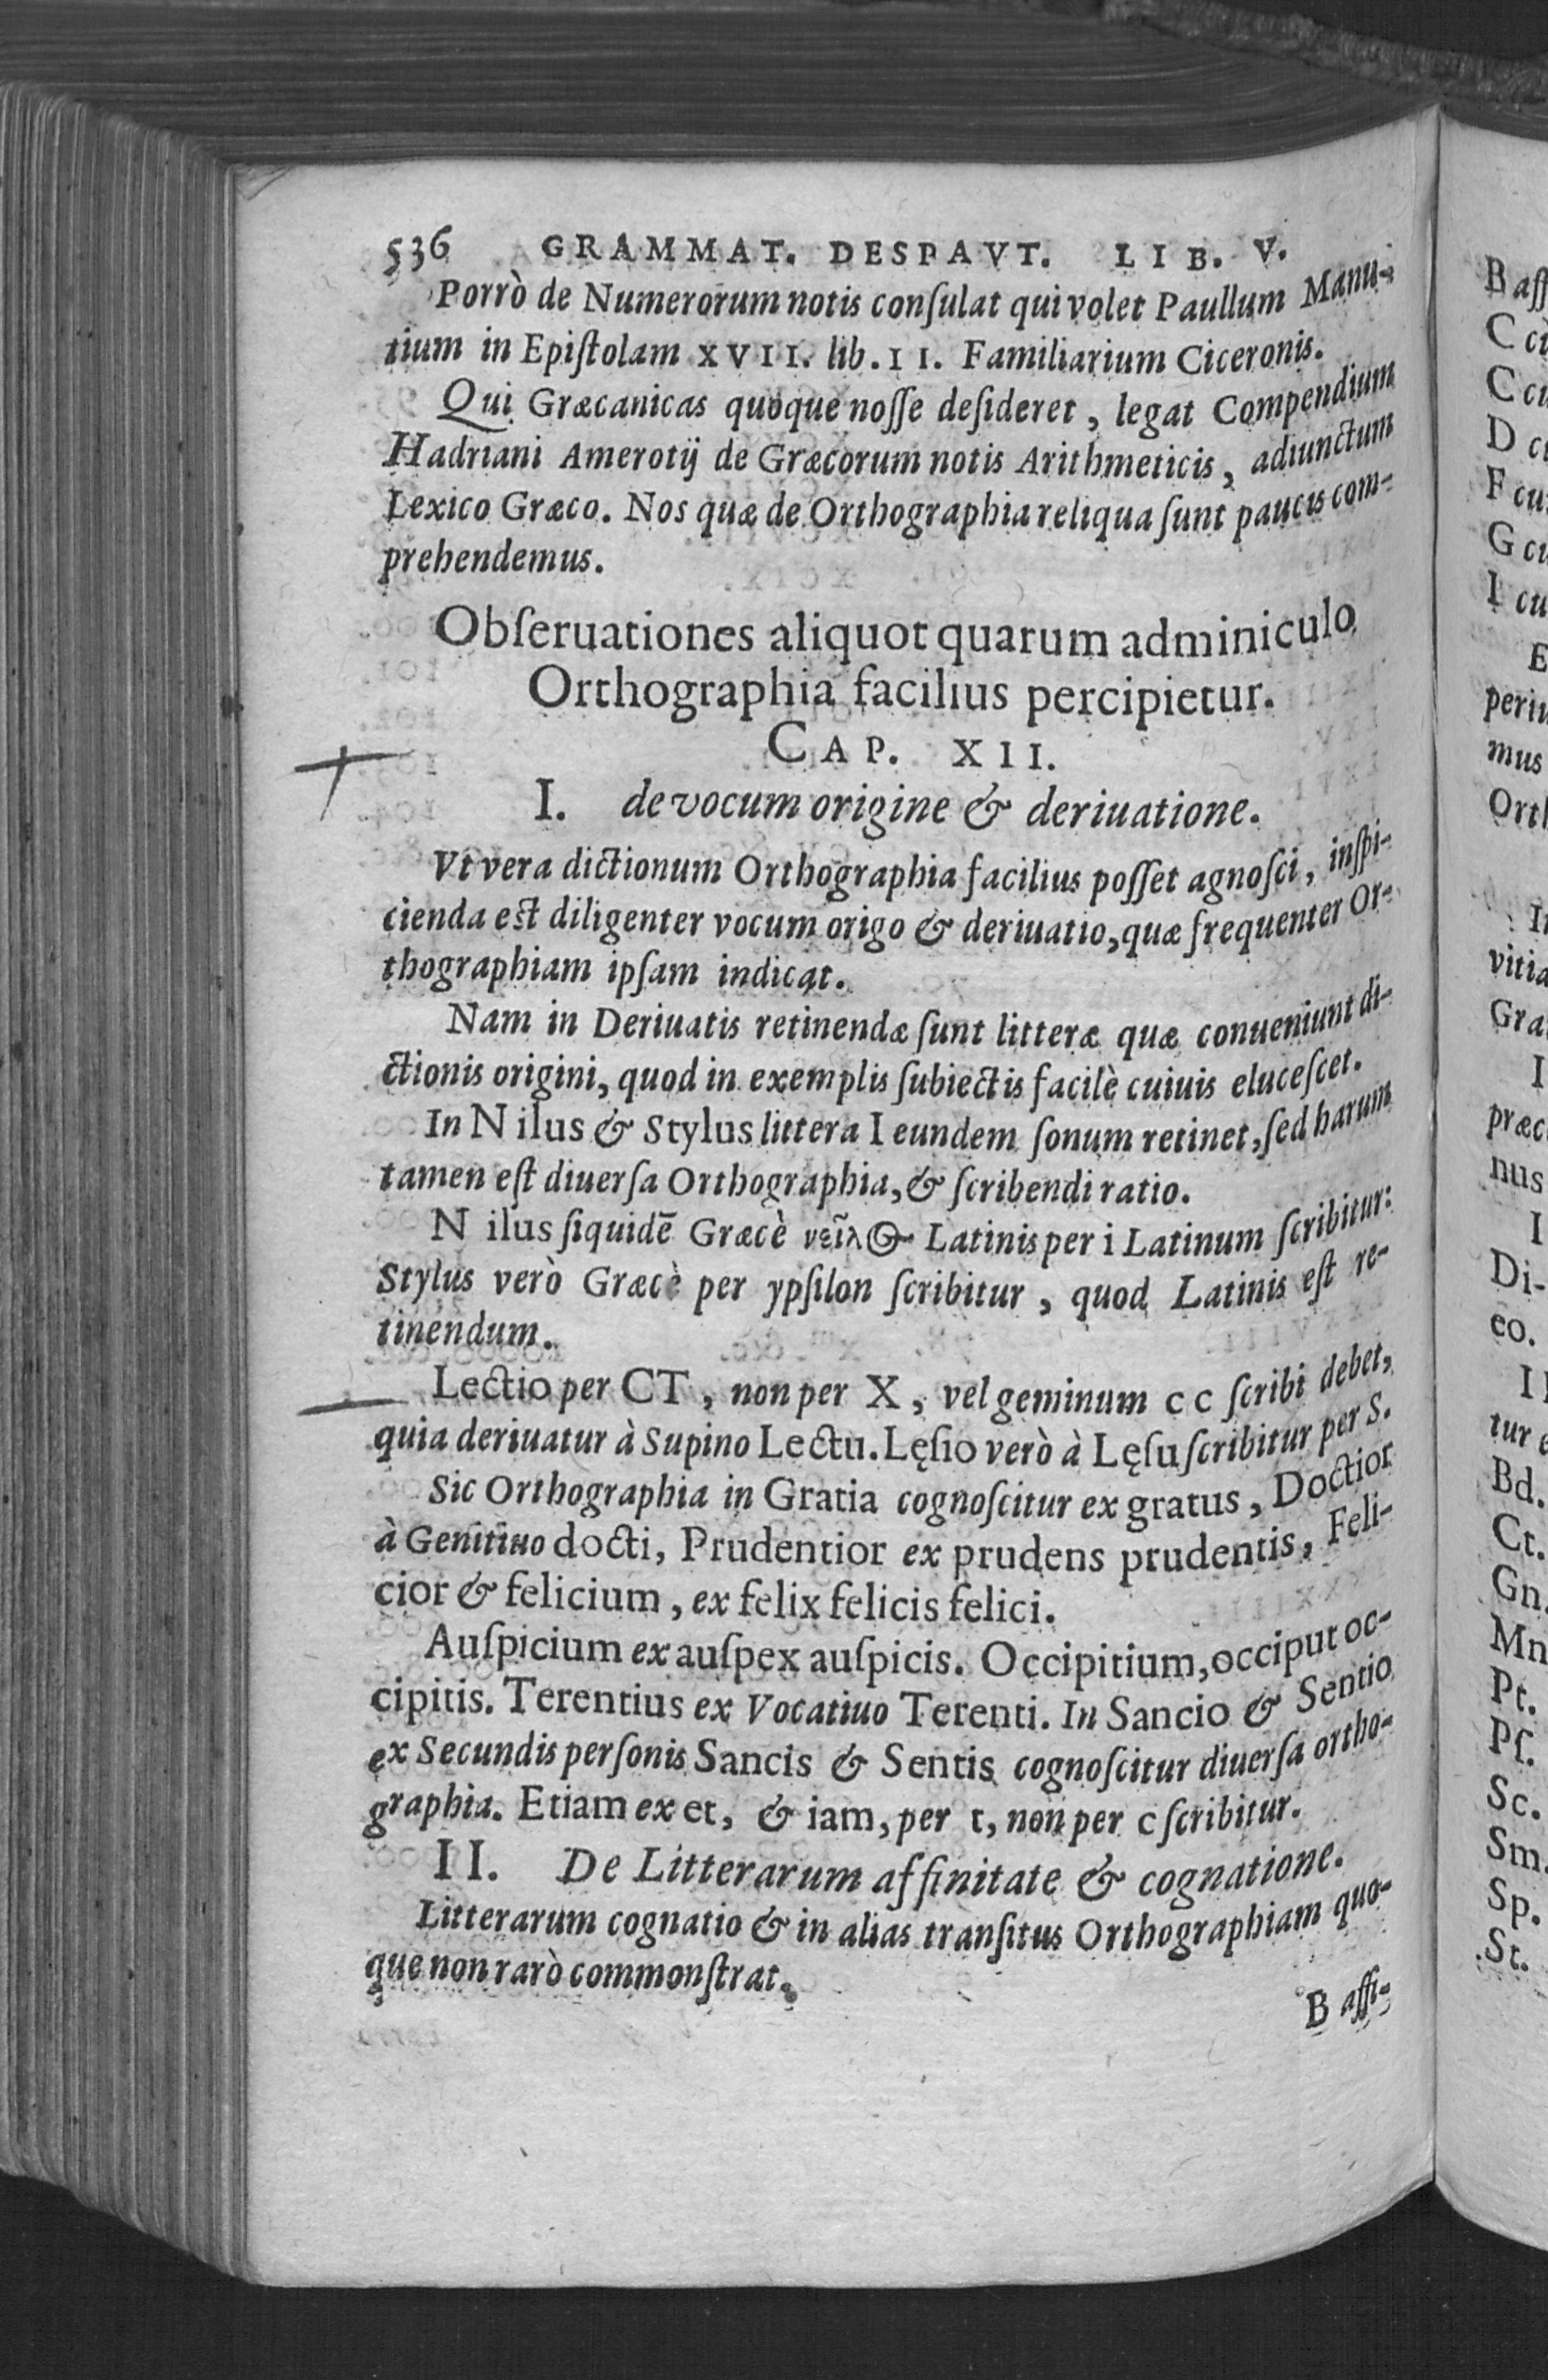 536 GRAMMAT. DESPAVT. LIB. V.
Porrò de Numerorum notis conſulat qui volet Paullum Manu-
tium in Epiſtolam XVII. lib. II. Familiarium Ciceronis.
Qui Græcanicas quoque noſſe deſideret, legat Compendium
Hadriani Amerotij de Græcorum notis Arithmeticis, adiunctum
Lexico Græco. Nos quæ de Orthographia reliqua ſunt paucis com-
prehendemus.
Obſeruationes aliquot quarum adminiculo
Orthographia facilius percipietur.
CAP. XII.
I. de vocum origine & deriuatione.
Vt vera dictionum Orthographia facilius poſſet agnoſci, inſpi-
cienda est diligenter vocum origo & deriuatio, quæ frequenter Or-
thographiam ipſam indicat.
Nam in Deriuatis retinendæ ſunt litteræ quæ conueniunt di-
ctionis origini, quod in exemplis ſubiectis facilè cuiuis eluceſcet.
In Nilus & Stylus littera I eundem ſonum retinet, ſed harum
tamen eſt diuerſa Orthographia, & ſcribendi ratio.
Nilus ſiquidē Græcè νεῖλος Latinis per i Latinum ſcribitur:
Stylus verò Græcè per ypſilon ſcribitur, quod Latinis eſt re-
tinendum.
Lectio per CT, non per X, vel geminum cc ſcribi debet,
quia deriuatur à Supino Lectu. Lęſio verò à Lęſu ſcribitur per S.
Sic Orthographia in Gratia cognoſcitur ex gratus, Doctior
à Genitiuo docti, Prudentior ex prudens prudentis, Feli-
cior & felicium, ex felix felicis felici.
Auſpicium ex auſpex auſpicis. Occipitium, occiput oc-
cipitis. Terentius ex Vocatiuo Terenti. In Sancio & Sentio
ex Secundis perſonis Sancis & Sentis cognoſcitur diuerſa ortho-
graphia. Etiam ex et, & iam, per t, non per c ſcribitur.
II. De Litterarum affinitate & cognatione.
Litterarum cognatio & in alias tranſitus Orthographiam quo-
que non rarò commonſtrat.
B affi-
B aff
C ci
C cu
D c
F cu
G cu
I cu
E
periu
mus
Ort
I
vitia
Gra
I
præc
nus
I
Di-
eo.
I
tur e
Bd.
Ct.
Gn.
Mn
Pt.
Pſ.
Sc.
Sm.
Sp.
St.